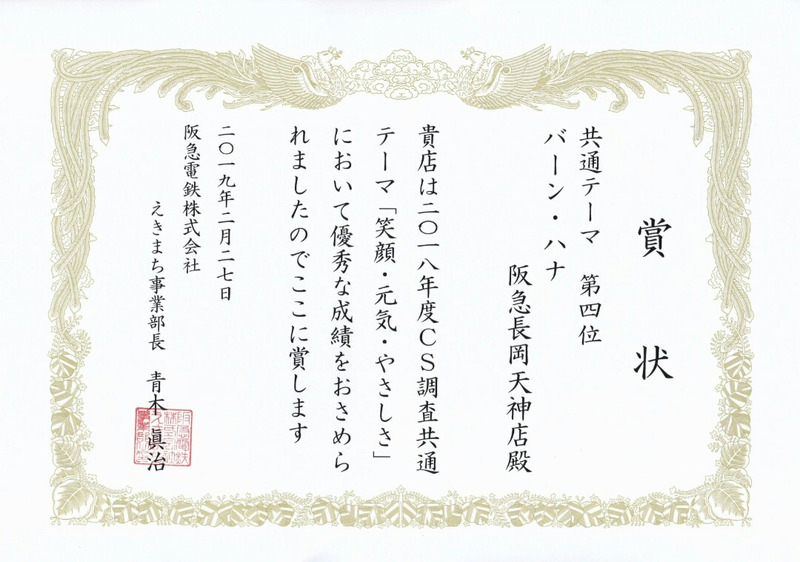 賞状
共通テーマ 第四位
バーン・ハナ
阪急長岡天神店殿
貴店は二〇一八年度CS調査共通
テーマ「笑顔・元気・やさしさ」
において優秀な成績をおさめら
れましたのでここに賞します
二〇一九年二月二七日
阪急電鉄株式会社
えきまち事業部長 青木眞治